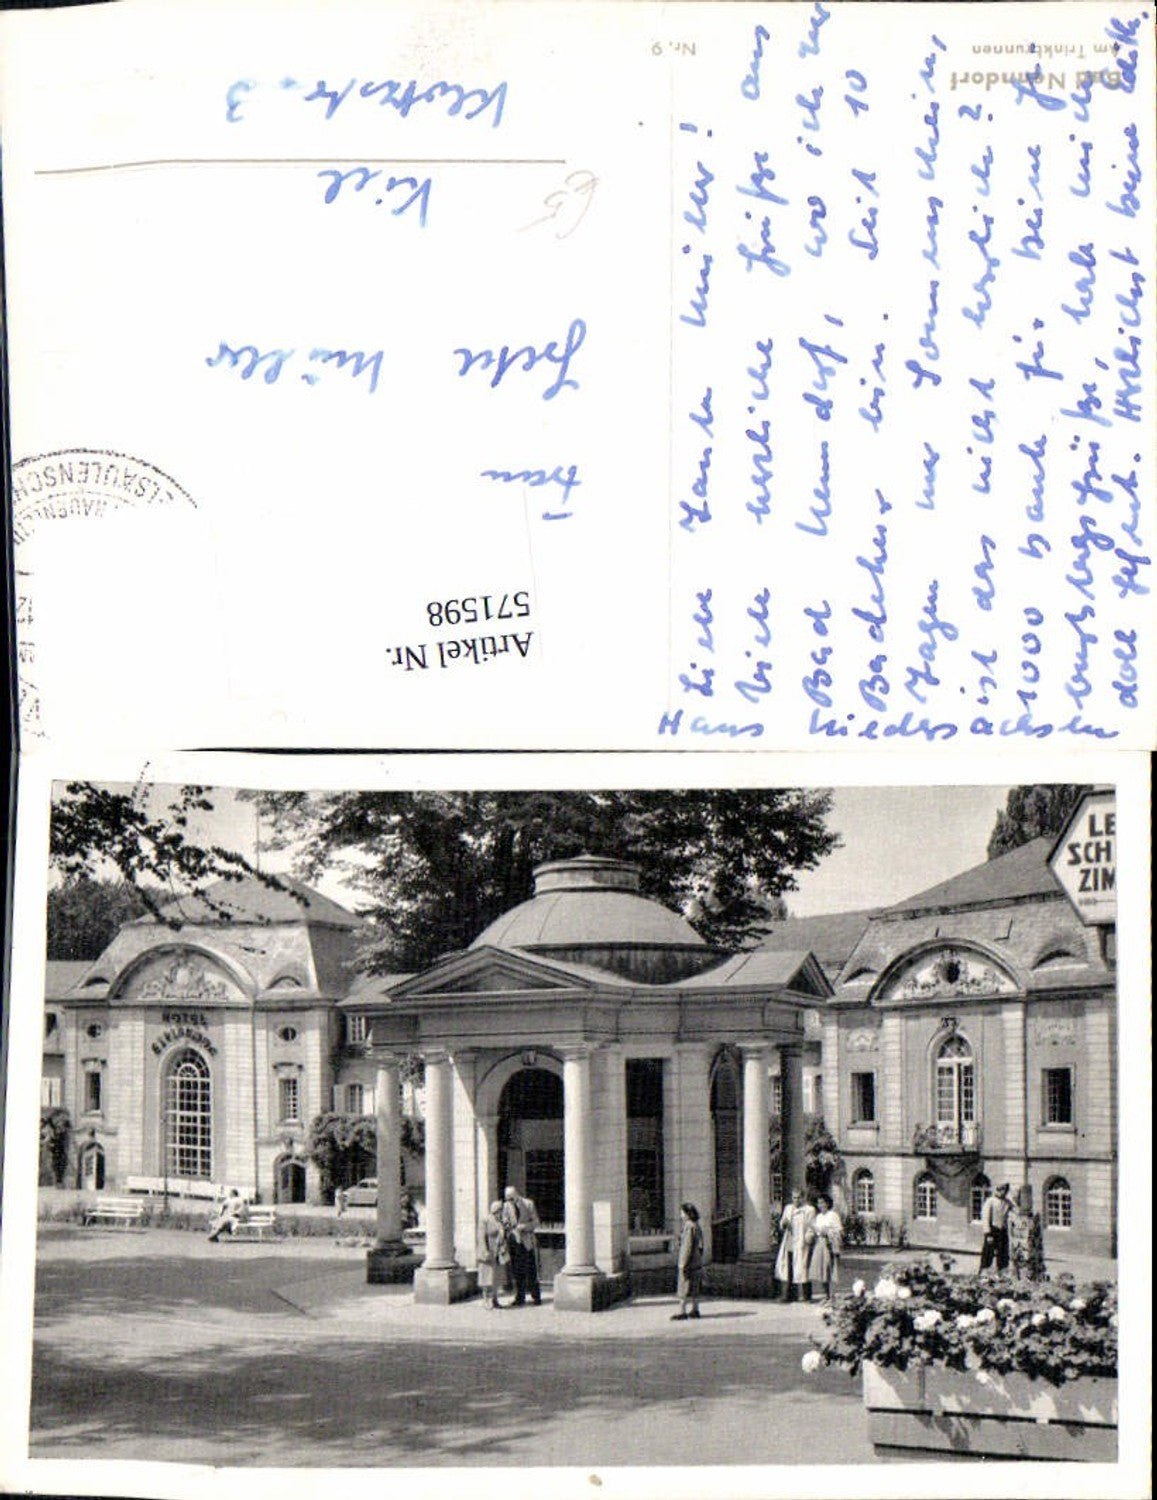 Bad Nenndorf
Am Trinkbrunnen
Nr. 9
Liebe Tante Müller!
Viele herzliche Grüße aus
Bad Nenndorf, wo ich zur
Badekur bin. Seit 10
Tagen nur Sonnenschein,
ist das nicht herrlich?
1000 Dank für Deine Ge-
burtstagsgrüße, hab mich
doll gefreut. Herzlichst Deine Edith.
Haus Niedersachsen
Frau
Grete Müller
Kiel
Klotzstr. 3
Artikel Nr.
571598
HOTEL
LE
SCH
ZIM